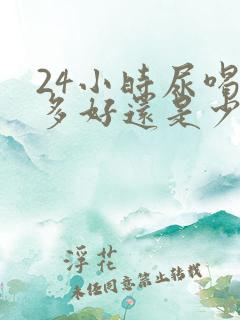 24小時尿喝
多好還是少
浮花
未经同意禁止转载